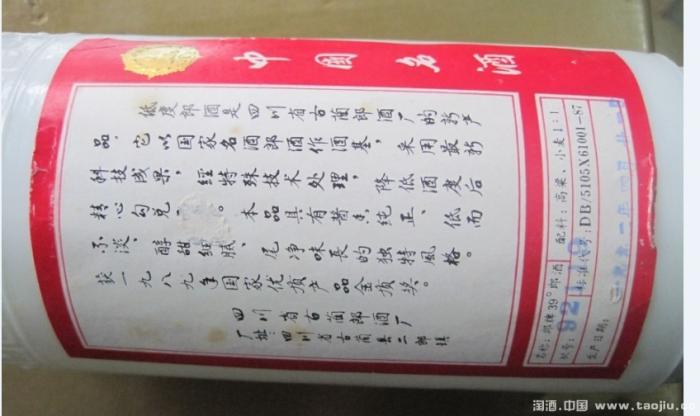 中国名酒
低度郎酒是四川省古蔺郎酒厂的新产
品，它以国家名酒郎酒作酒基，采用最新
科技成果，经特殊技术处理，降低酒度后
精心勾兑。本品具有酱香纯正、低而
不淡、醇甜细腻、尾净味長的独特風格。
获一九八九年国家优质产品金质奖。
四川省古蔺郎酒厂
厂址：四川省古蔺县二郎镇
名称：郎牌39°郎酒 配料：高粱、小麦1:1
批号： 标准代号：DB/5105X61001-87
生产日期：
淘酒.中国 www.taojiu.cn